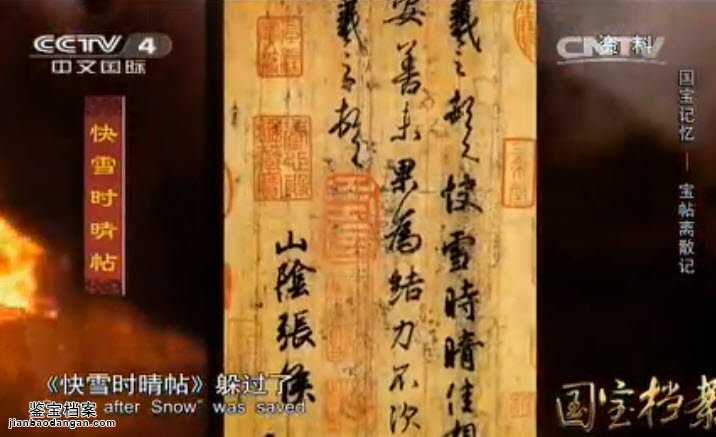 CCTV 4
中文国际
CNTV
资料
国宝记忆 — 宝帖离散记
快雪时晴帖
羲之頓首快雪時晴佳想
安善未果為結力不次
羲之頓首
山陰張侯
《快雪时晴帖》躲过了
after Snow" was saved
国宝档案
鉴宝档案
jianbaodangan.com